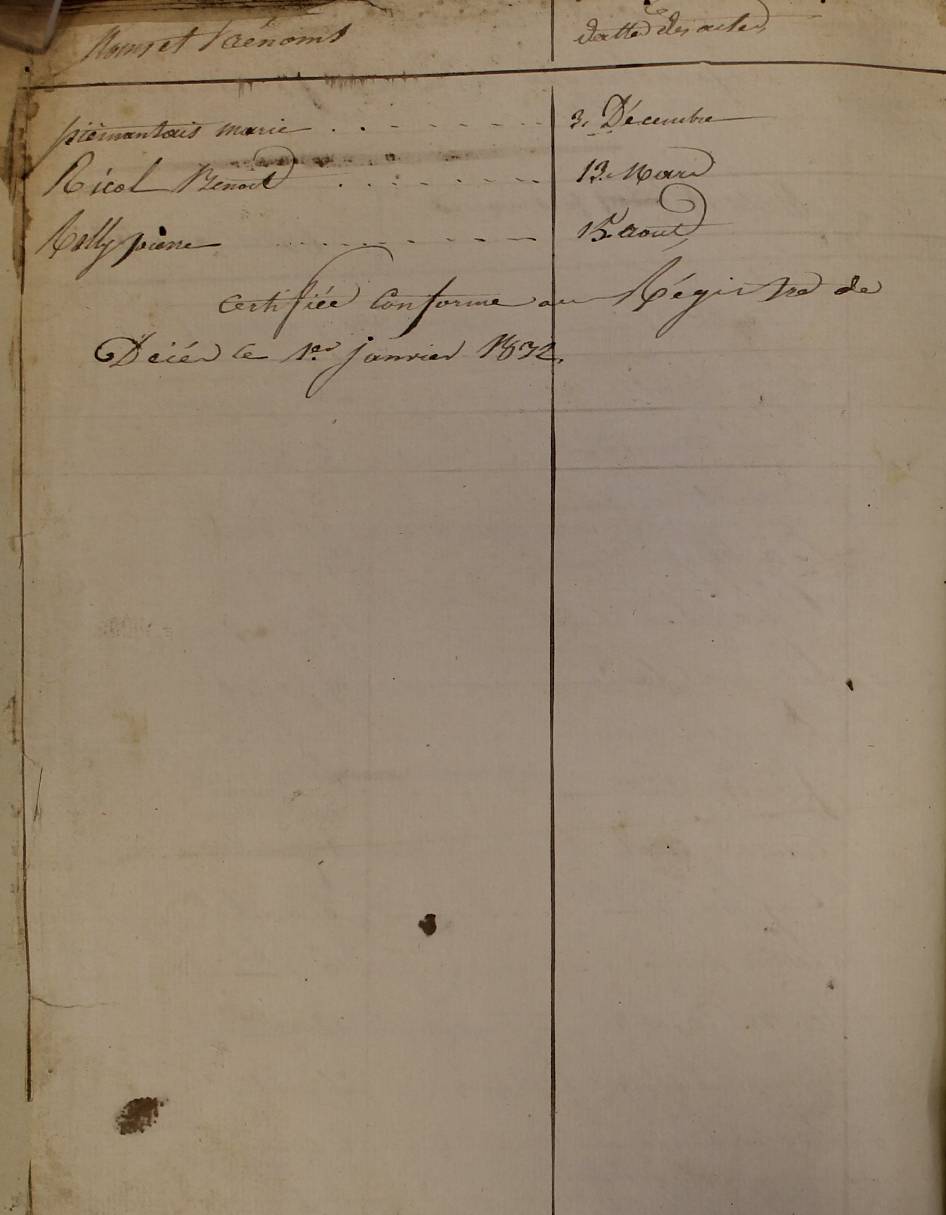 Noms et Prénoms datte des actes
piémantois marie . . . . . . . 3. Décembre
Ricol Benoit . . . . . . . 13. Mars
Rolly pierre . . . . . . . 15. aout
certifiée Conforme au Régistre de
Décés le 1er janvier 1832.